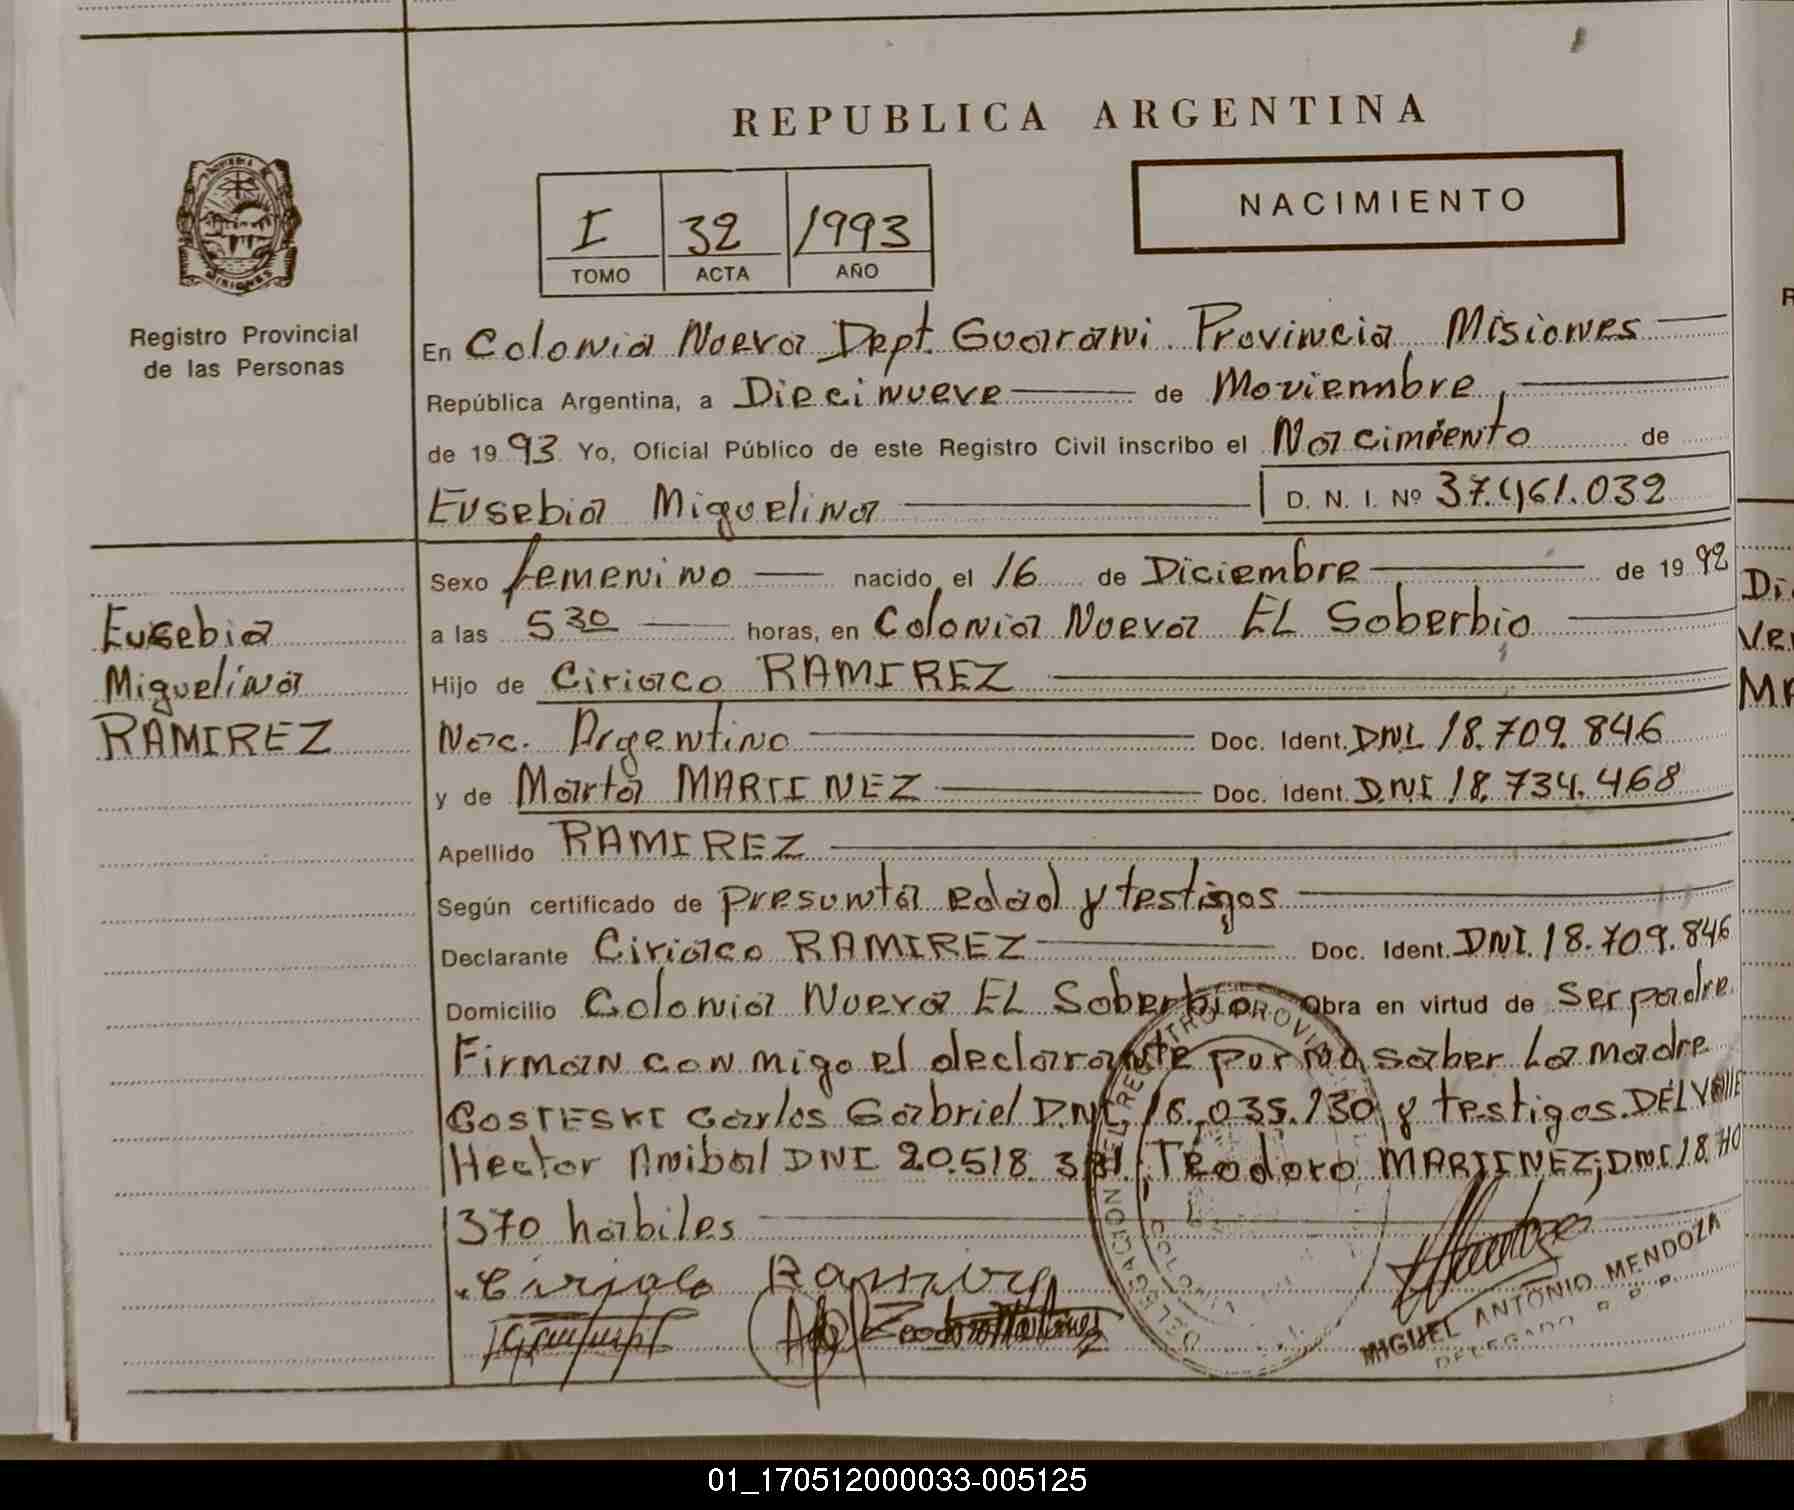 REPUBLICA ARGENTINA
NACIMIENTO
I 32 1993
TOMO ACTA AÑO
Registro Provincial
de las Personas
En Colonia Nueva Dept. Guarani Provincia Misiones
República Argentina, a Diecinueve de Noviembre
de 1993 Yo, Oficial Público de este Registro Civil inscribo el Nacimiento de
Eusebia Miguelina D. N. I. Nº 37.461.032
Eusebia
Miguelina
RAMIREZ
Sexo femenino nacido el 16 de Diciembre de 1992
a las 5 30 horas, en Colonia Nueva EL Soberbio
Hijo de Ciriaco RAMIREZ
Nac. Argentino Doc. Ident. DNI 18.709.846
y de Marta MARTINEZ Doc. Ident. DNI 18.734.468
Apellido RAMIREZ
Según certificado de presunta edad y testigos
Declarante Ciriaco RAMIREZ Doc. Ident. DNI. 18.709.846
Domicilio Colonia Nueva EL Soberbio Obra en virtud de Ser padre
Firman con migo el declarante por no saber La madre
GOSTESKI Carlos Gabriel DNI 16.035.130 y testigos. DELVALLE
Hector Anibal DNI 20.518. Teodoro MARTINEZ; DNI 18.710
370 habiles
Ciriaco Ramirez
Teodoro Martinez
MIGUEL ANTONIO MENDOZA
DELEGADO R. P. P.
DELEGACION DEL REGISTRO PROVINCIAL
01_170512000033-005125